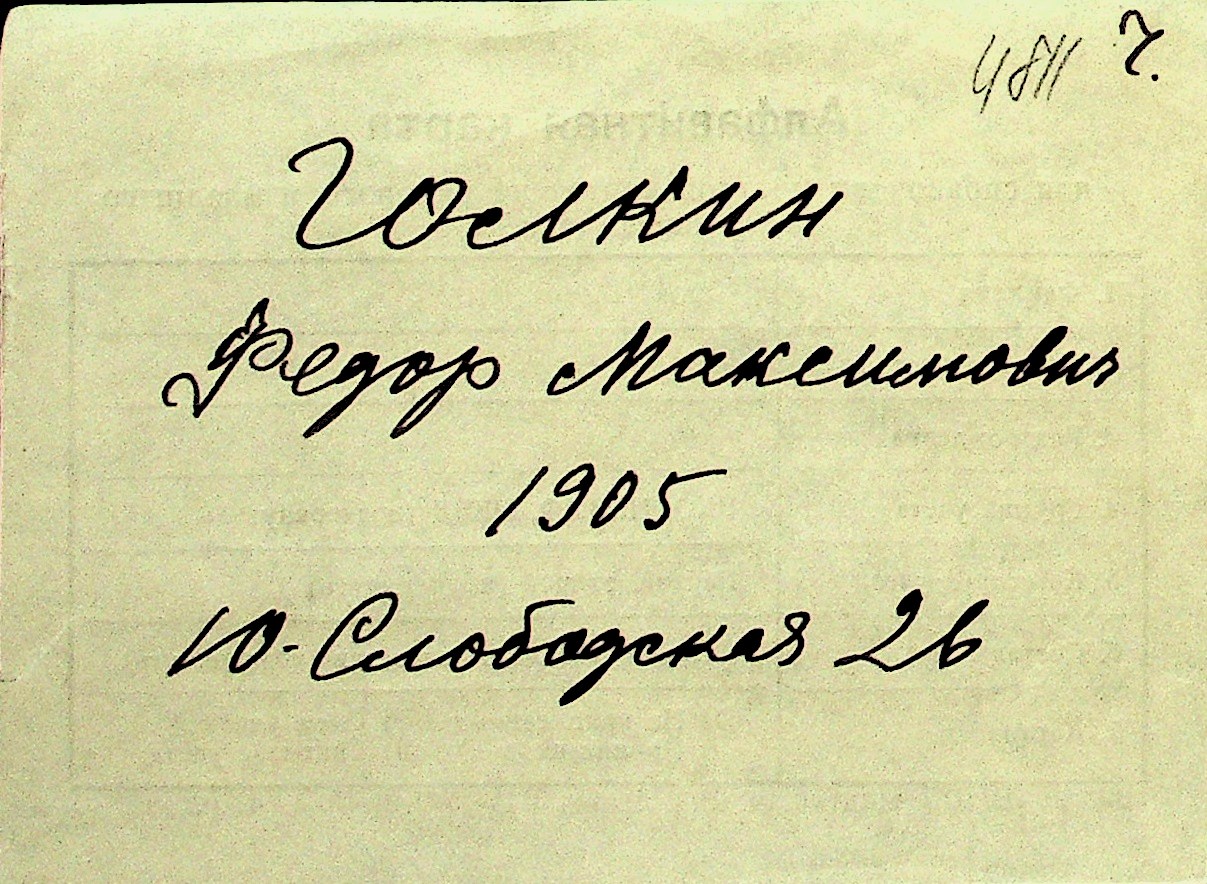 4811 г.
Гоелкин
Федор Максимович
1905
Ю-Слободская 26